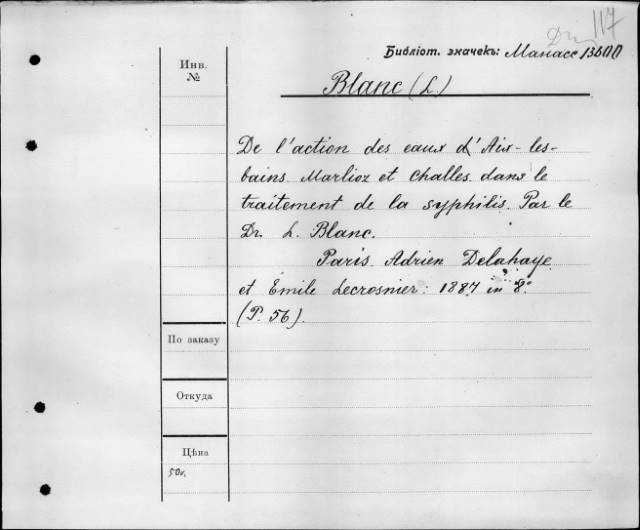 117
Библіот. значекъ: Манасс 13600
Инв.
№
Blanc (L.)
De l'action des eaux d'Aix-les-
bains, Marlioz et Challes, dans le
traitement de la syphilis. Par le
Dr. L. Blanc.
Paris. Adrien Delahaye
et Émile Lecrosnier. 1887. in 8°.
(P. 56).
По заказу
Откуда
Цѣна
50к.